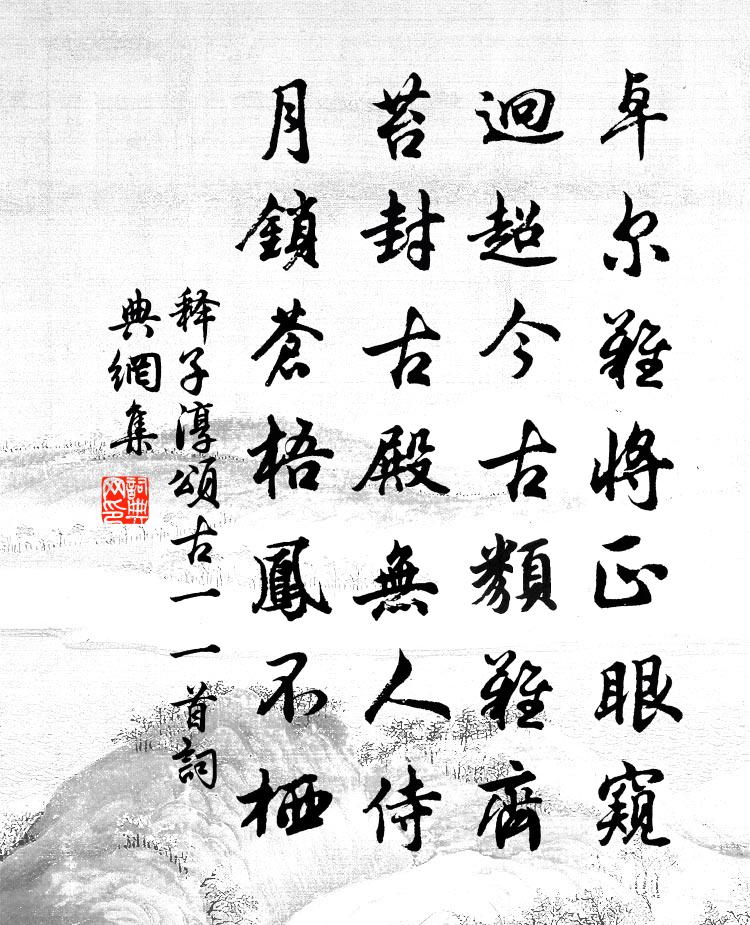 卓尔難將正眼窺
迥超今古類難齊
苔封古殿無人侍
月鎖蒼梧鳳不栖
释子淳頌古一一首詞
典網集
詞典
网印